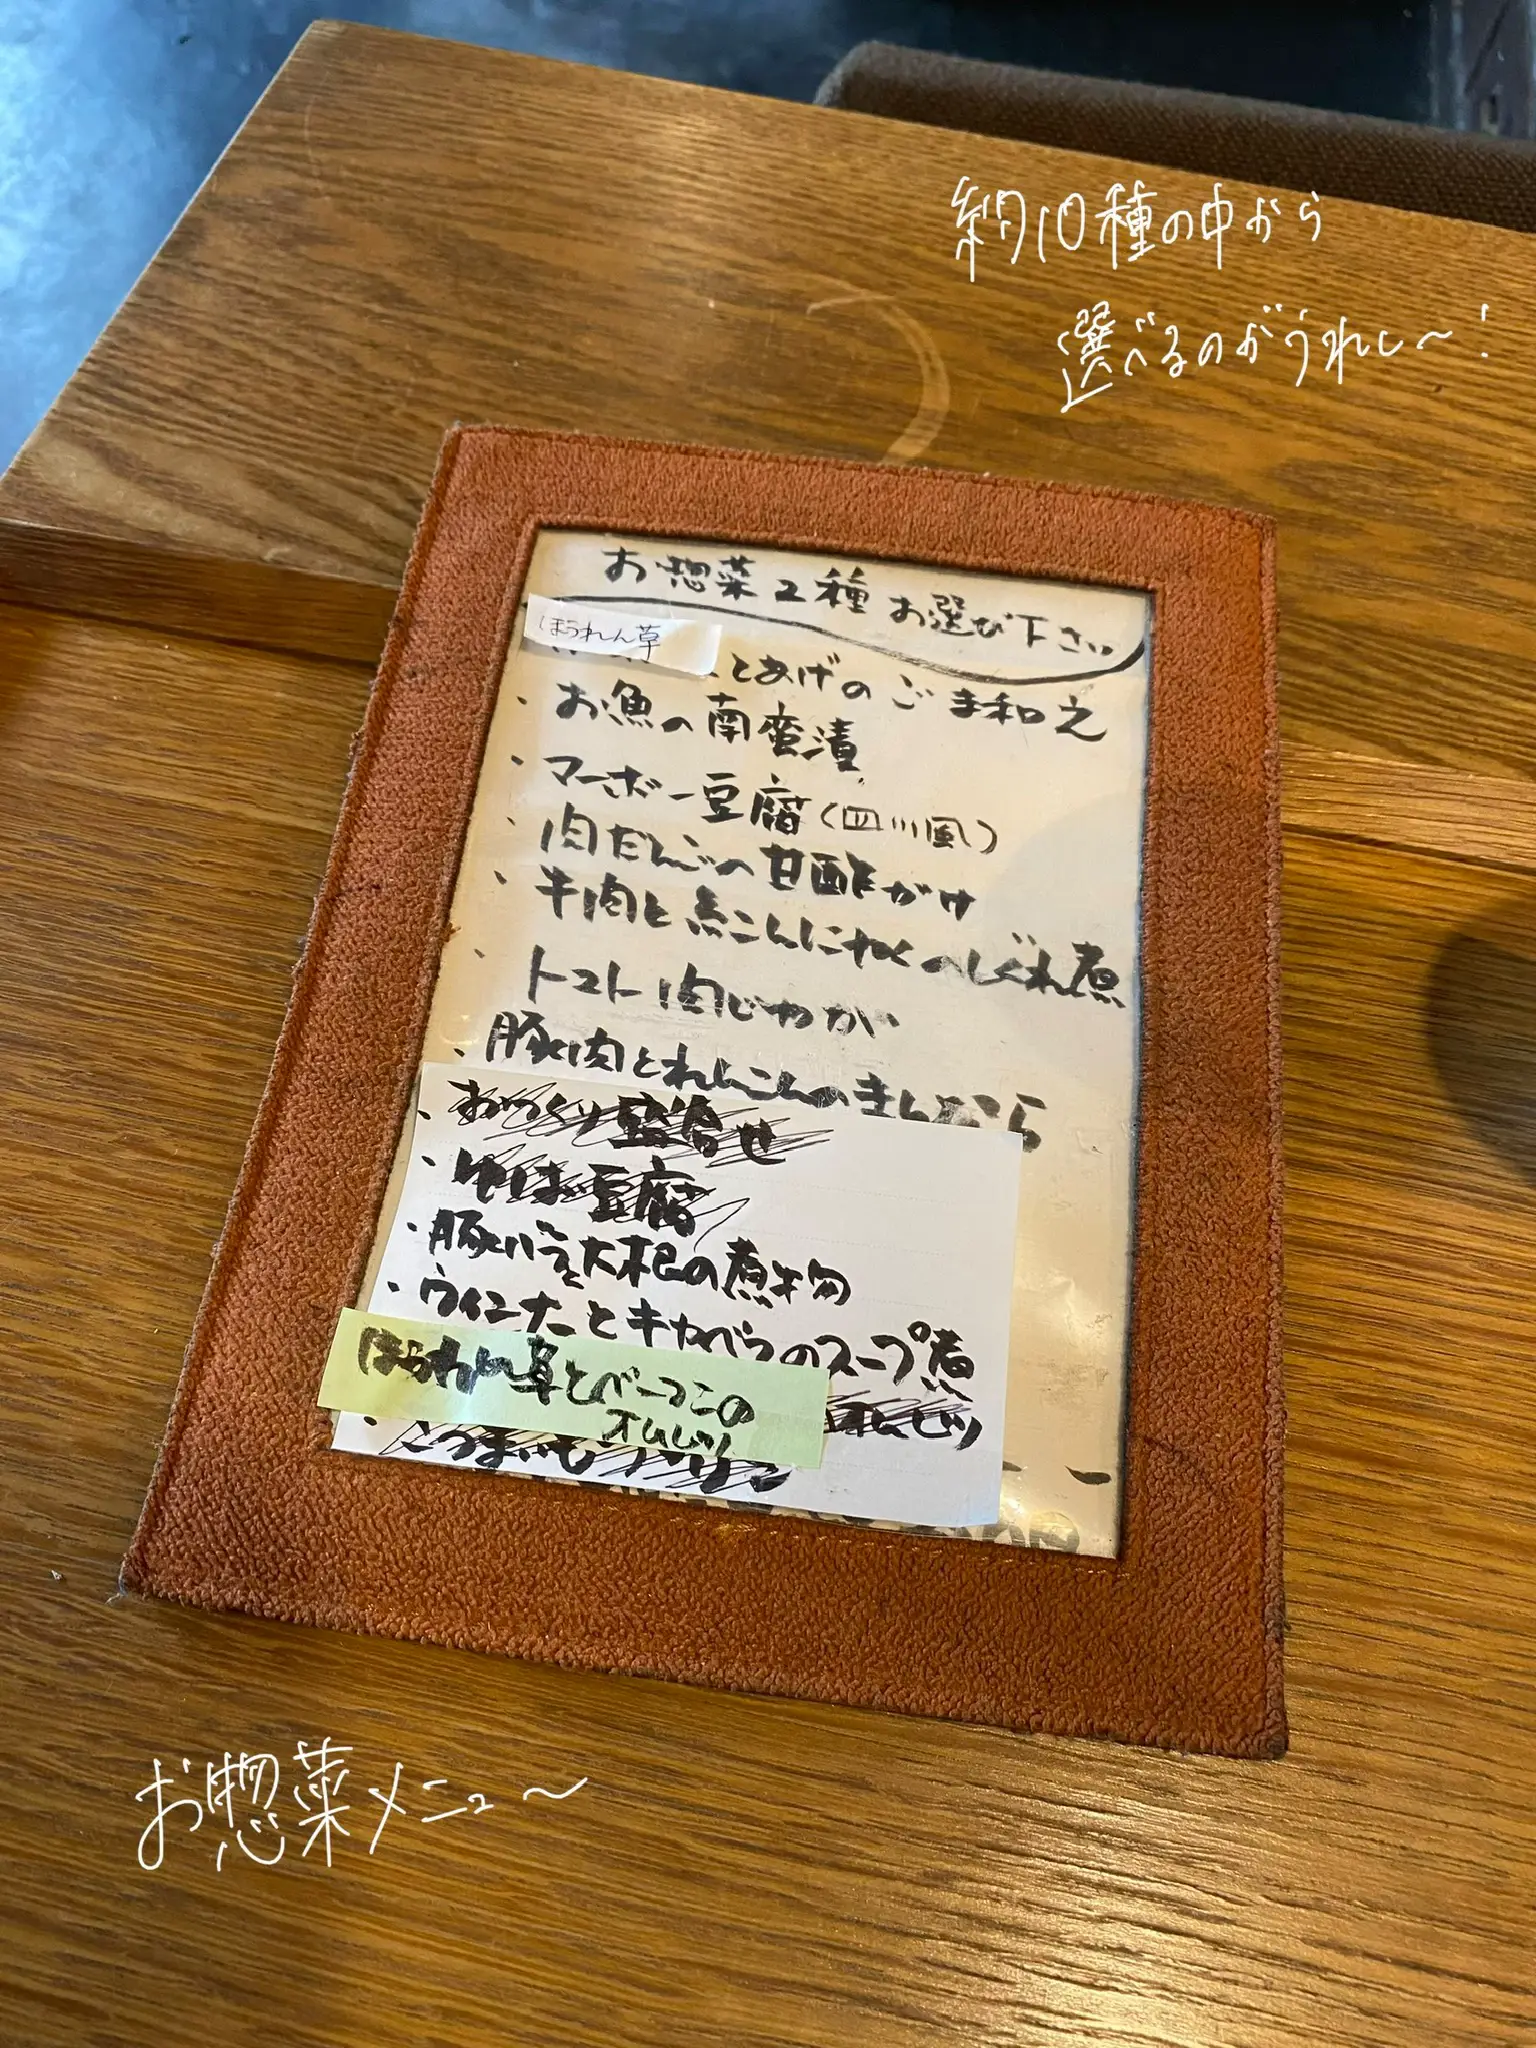 約10種の中から
選べるのがうれし〜!
お惣菜2種お選び下さい
ほうれん草
とあげのごま和え
・お魚の南蛮漬
・マーボー豆腐(四川風)
・肉だんごの甘酢がけ
・牛肉と糸こんにゃくのしぐれ煮
・トマト肉じゃが
・豚肉とれんこんのきんぴら
・おつくり盛合せ
・ゆば豆腐
・豚バラと大根の煮物
・ウインナーとキャベツのスープ煮
ほうれん草とベーコンの
オムレツ
お惣菜メニュ〜